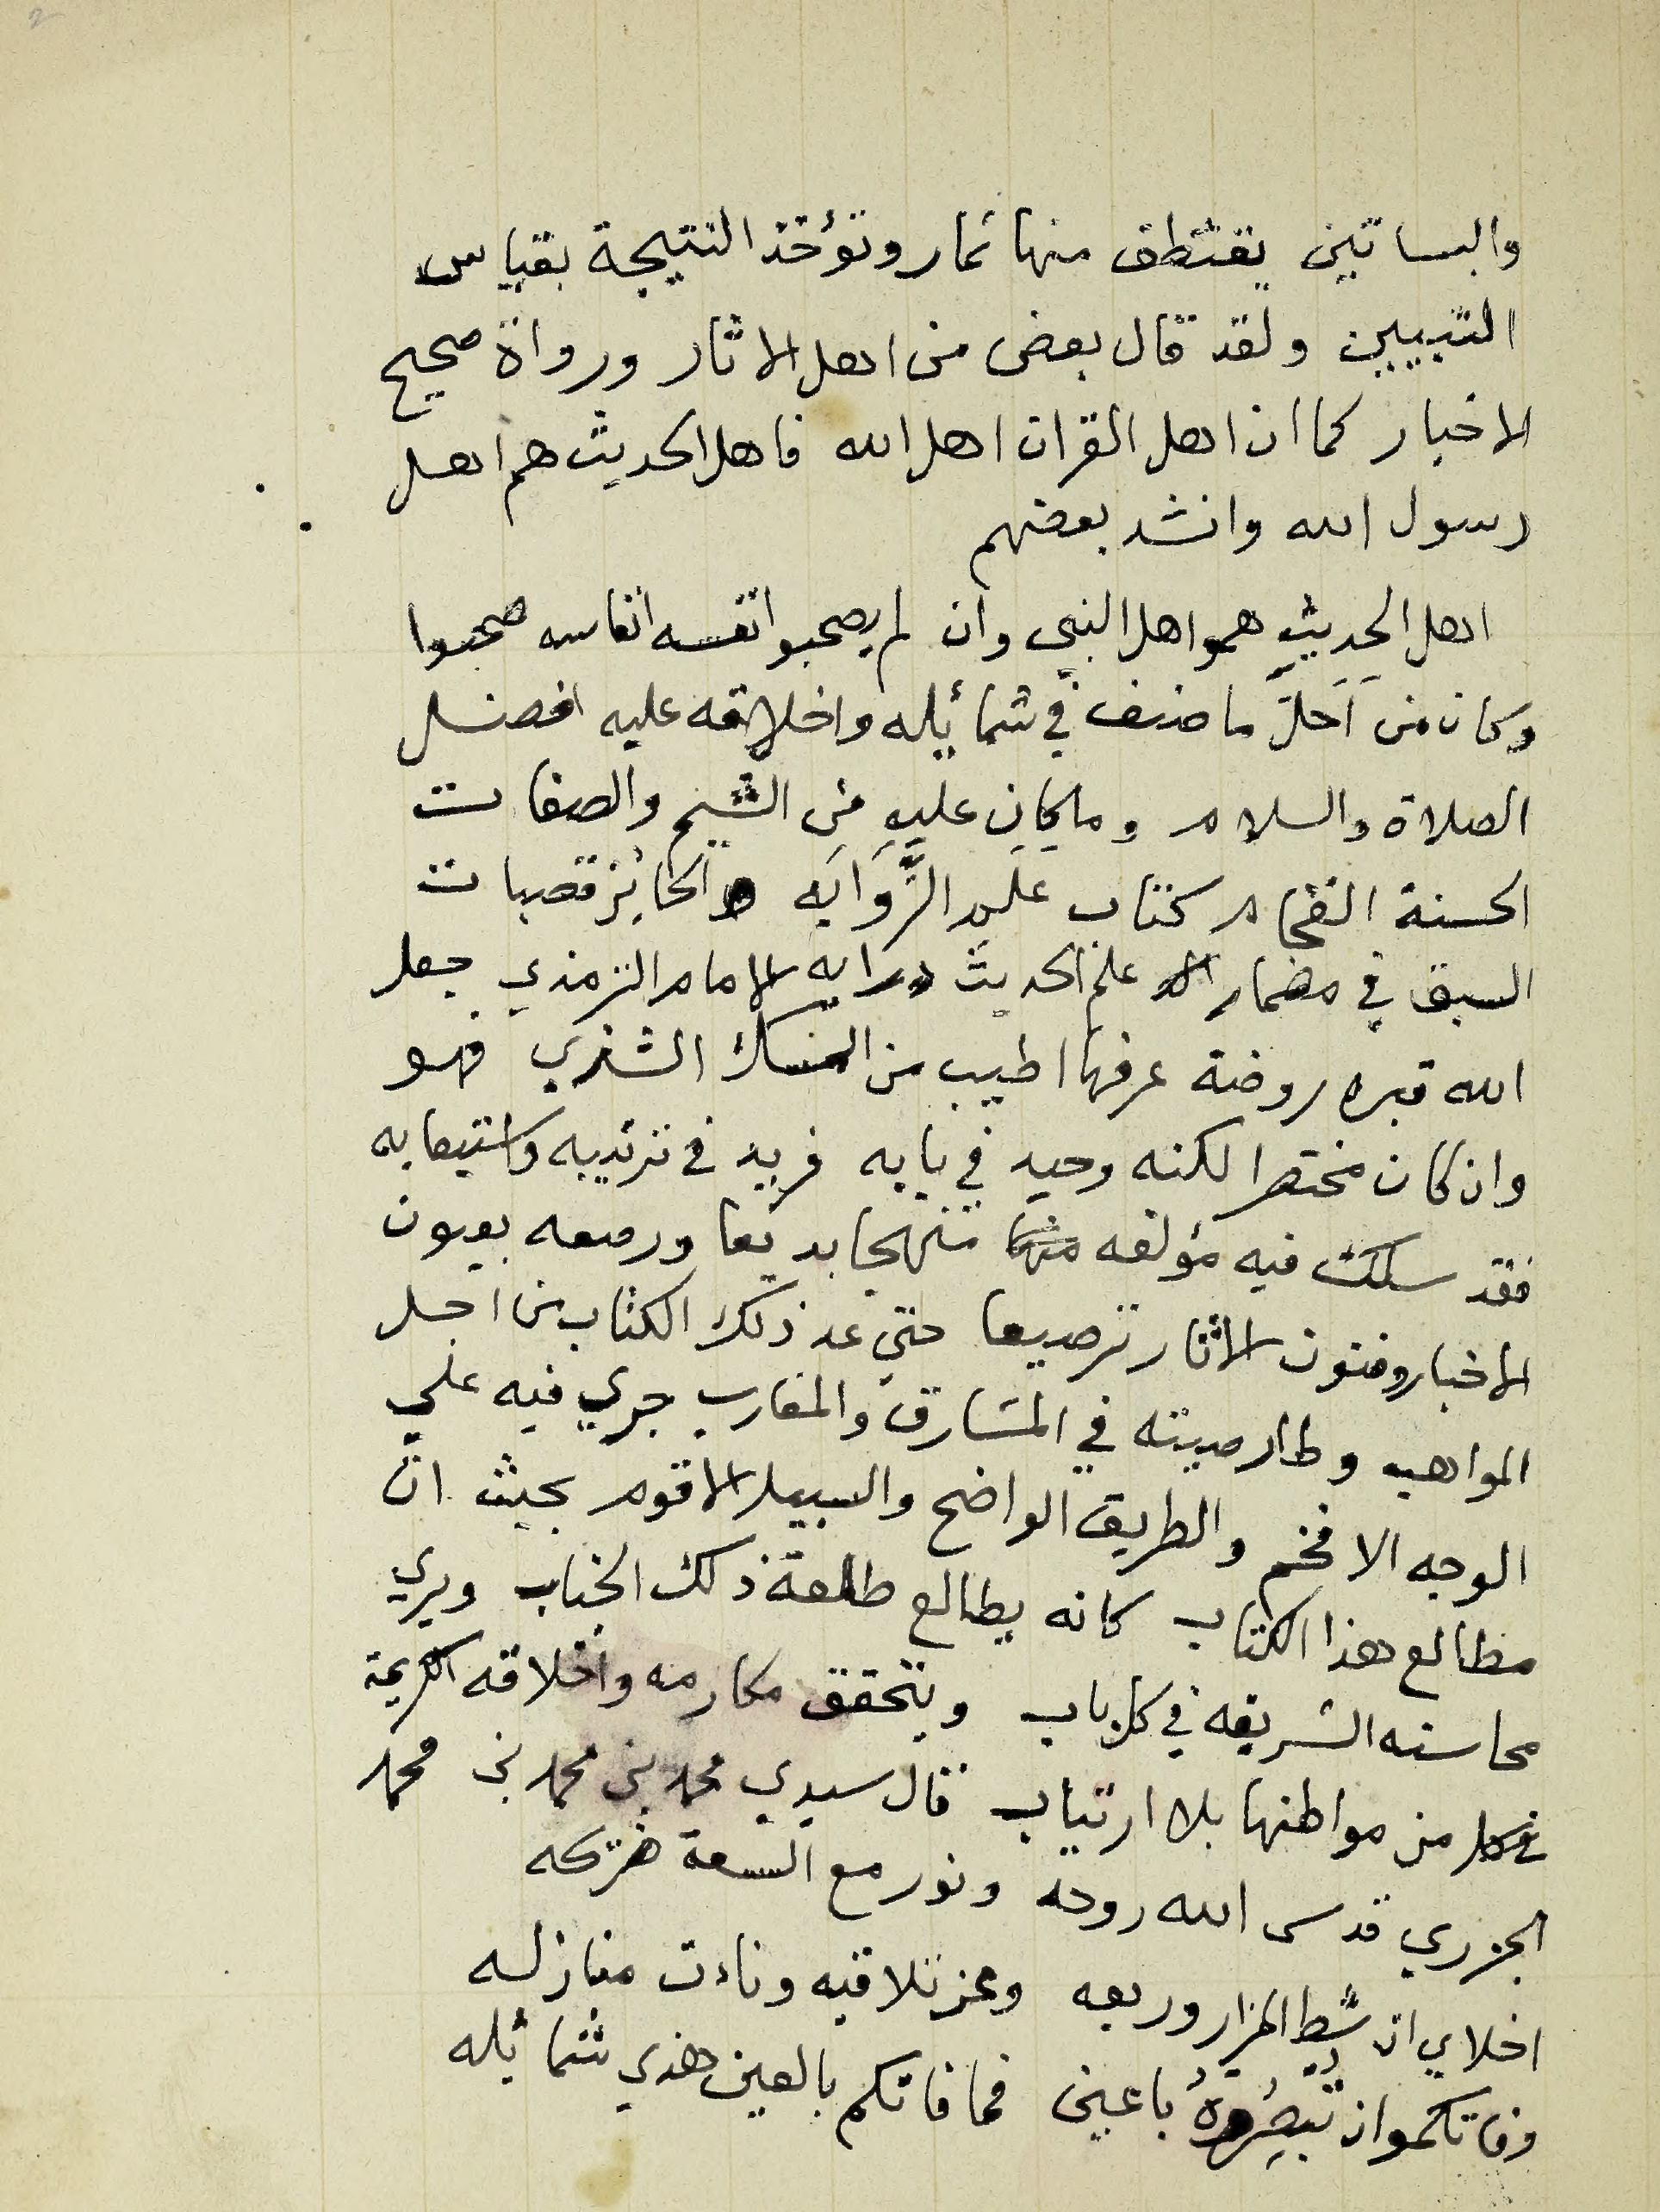 والبساتين يقتطف منها ثمار وتؤخذ النتيجة بقياس
التبيين ولقد قال بعض من اهل الاثار ورواة صحيح
الاخبار كما ان اهل القران اهل الله فاهل الحديث هم اهل
رسول الله وانشد بعضهم
اهل الحديث همو اهل النبي وان لم يصحبوا نفسه انفاسه صحبوا
وكان من اجل ما صنف في شمائله واخلاقه عليه افضل
الصلاة والسلام وما كان عليه من الشيم والصفات
الحسنة الفخام كتاب علم الرواية والحائز قصبات
السبق في مضمار علم الحديث درايه الامام الترمذي جعل
الله قبره روضة عرفها اطيب من المسك الشذي فهو
وان كان مختصرا لكنه وحيد في بابه فريد في ترتيبه واستيعابه
فقد سلك فيه مؤلفه منهجا بديعا ورصعه بعيون
الاخبار وفنون الاثار ترصيعا حتي عد ذلك الكتاب من اجل
المواهب وطار صيته في المشارق والمغارب جري فيه علي
الوجه الافخم والطريق الواضح والسبيل الاقوم بحيث ان
مطالع هذا الكتاب كانه يطالع طلعة ذلك الجناب ويري
محاسنه الشريفه في كل باب ويتحقق مكارمه واخلاقه الكريمة
في كل من مواطنها بلا ارتياب قال سيدي محمد بن محمد بن محمد
الجزري قدس الله روحه ونور مع السعة ضريحه
اخلاي ان شط المزار وربعه وعز تلاقيه وناءت منازله
وفاتكموا ان تبصروه باعين فما فاتكم بالعين هذي شمائله